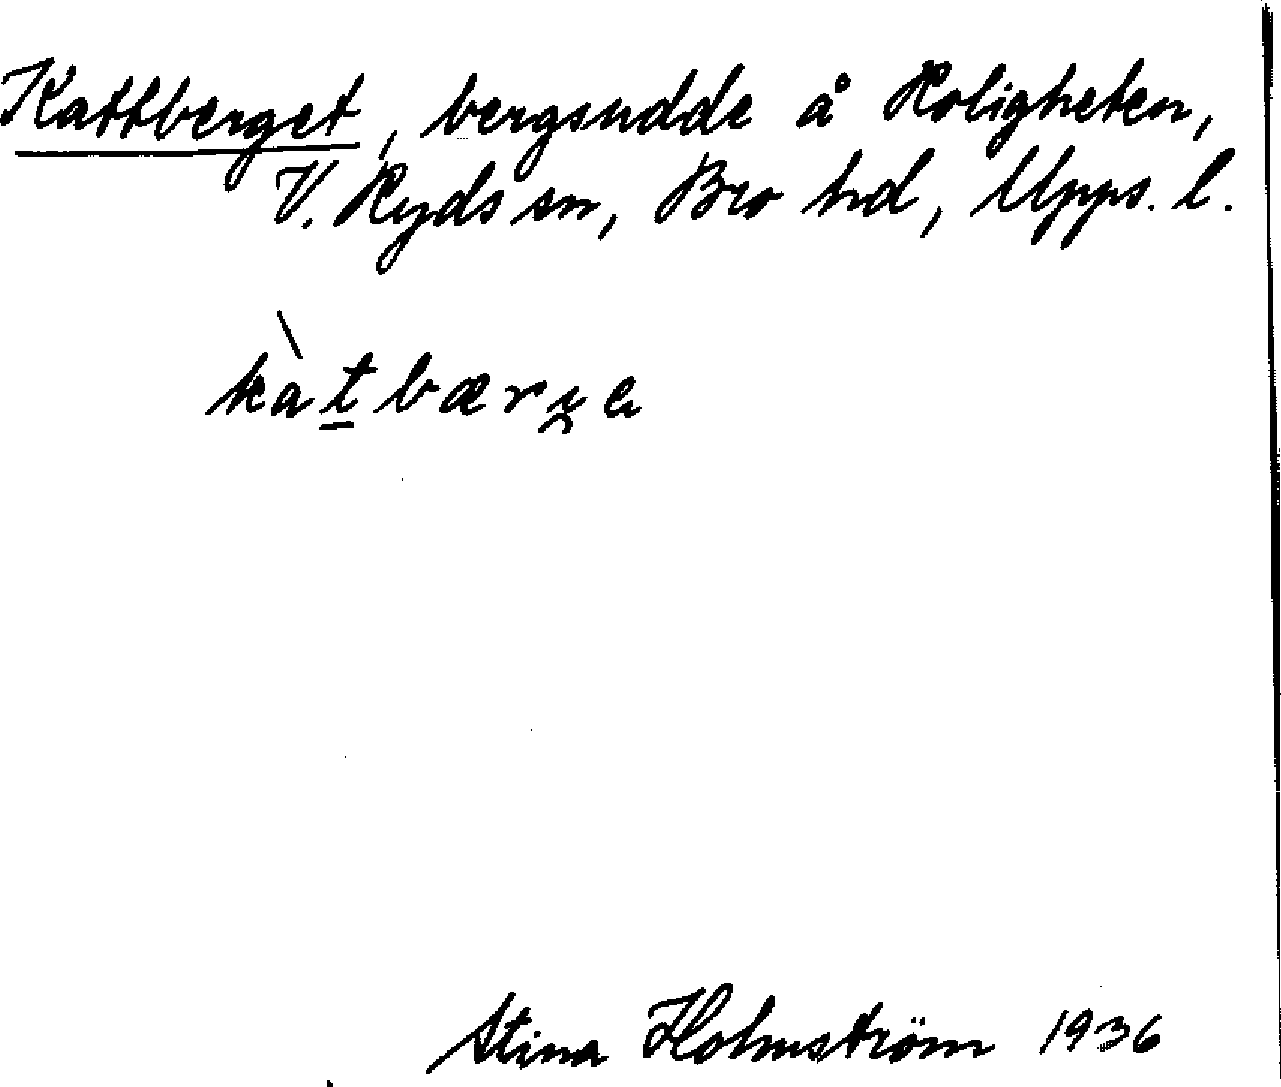 Kattberget, bergsudde å Roligheten,
V. Ryds sn, Bro hd, Upps. l.
kàt̲bærı̯e
Stina Holmström 1936